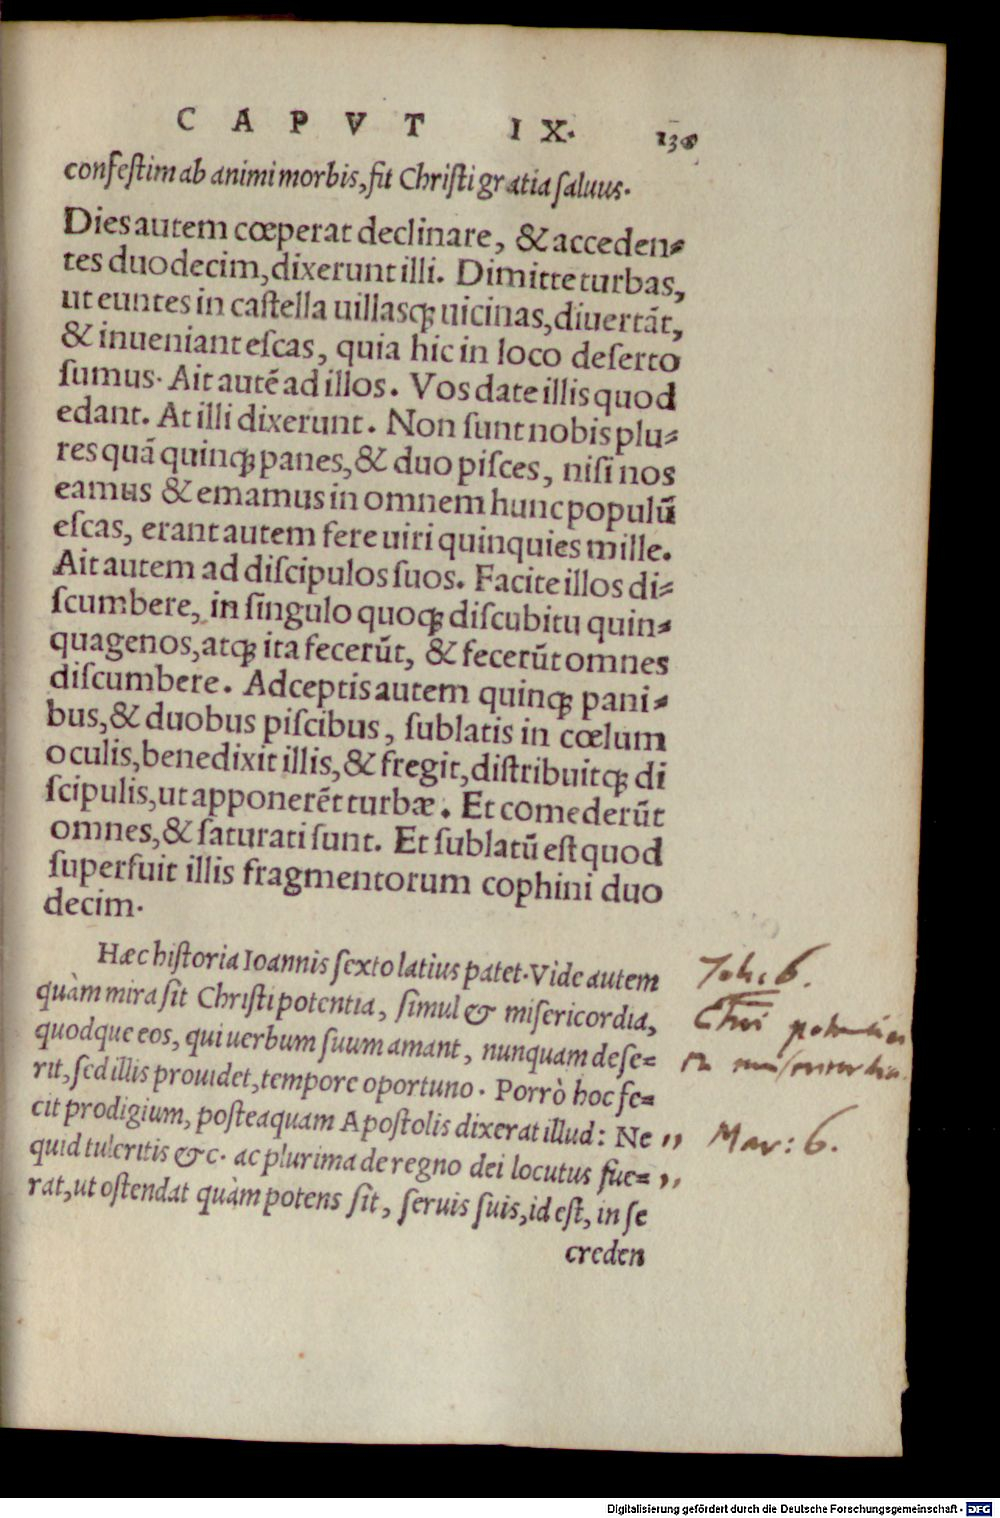 CAPVT IX. 138
confeſtim ab animi morbis, fit Chriſti gratia ſaluus.
Dies autem cœperat declinare, & acceden-
tes duodecim, dixerunt illi. Dimitte turbas,
ut euntes in caſtella uillasq; uicinas, diuertãt,
& inueniant eſcas, quia hic in loco deſerto
ſumus. Ait autẽ ad illos. Vos date illis quod
edant. At illi dixerunt. Non ſunt nobis plu-
res quã quinq; panes, & duo piſces, niſi nos
eamus & emamus in omnem hunc populũ
eſcas, erant autem fere uiri quinquies mille.
Ait autem ad diſcipulos ſuos. Facite illos di-
ſcumbere, in ſingulo quoq; diſcubitu quin-
quagenos, atq; ita fecerũt, & fecerũt omnes
diſcumbere. Adceptis autem quinq; pani-
bus, & duobus piſcibus, ſublatis in cœlum
oculis, benedixit illis, & fregit, diſtribuitq; di
ſcipulis, ut apponerẽt turbæ. Et comederũt
omnes, & ſaturati ſunt. Et ſublatũ eſt quod
ſuperfuit illis fragmentorum cophini duo
decim.
Hæc hiſtoria Ioannis ſexto latius patet. Vide autem
quàm mira ſit Chriſti potentia, ſimul & miſericordia,
quodque eos, qui uerbum ſuum amant, nunquam deſe-
rit, ſed illis prouidet, tempore oportuno. Porrò hoc fe-
cit prodigium, poſteaquam Apoſtolis dixerat illud: Ne
quid tuleritis &c. ac plurima de regno dei locutus fue-
rat, ut oſtendat quàm potens ſit, ſeruis ſuis, id eſt, in ſe
creden
Joh: 6.
Chri potentia
et misericordia.
,, Mar: 6.
,,
Digitalisierung gefördert durch die Deutsche Forschungsgemeinschaft - DFG